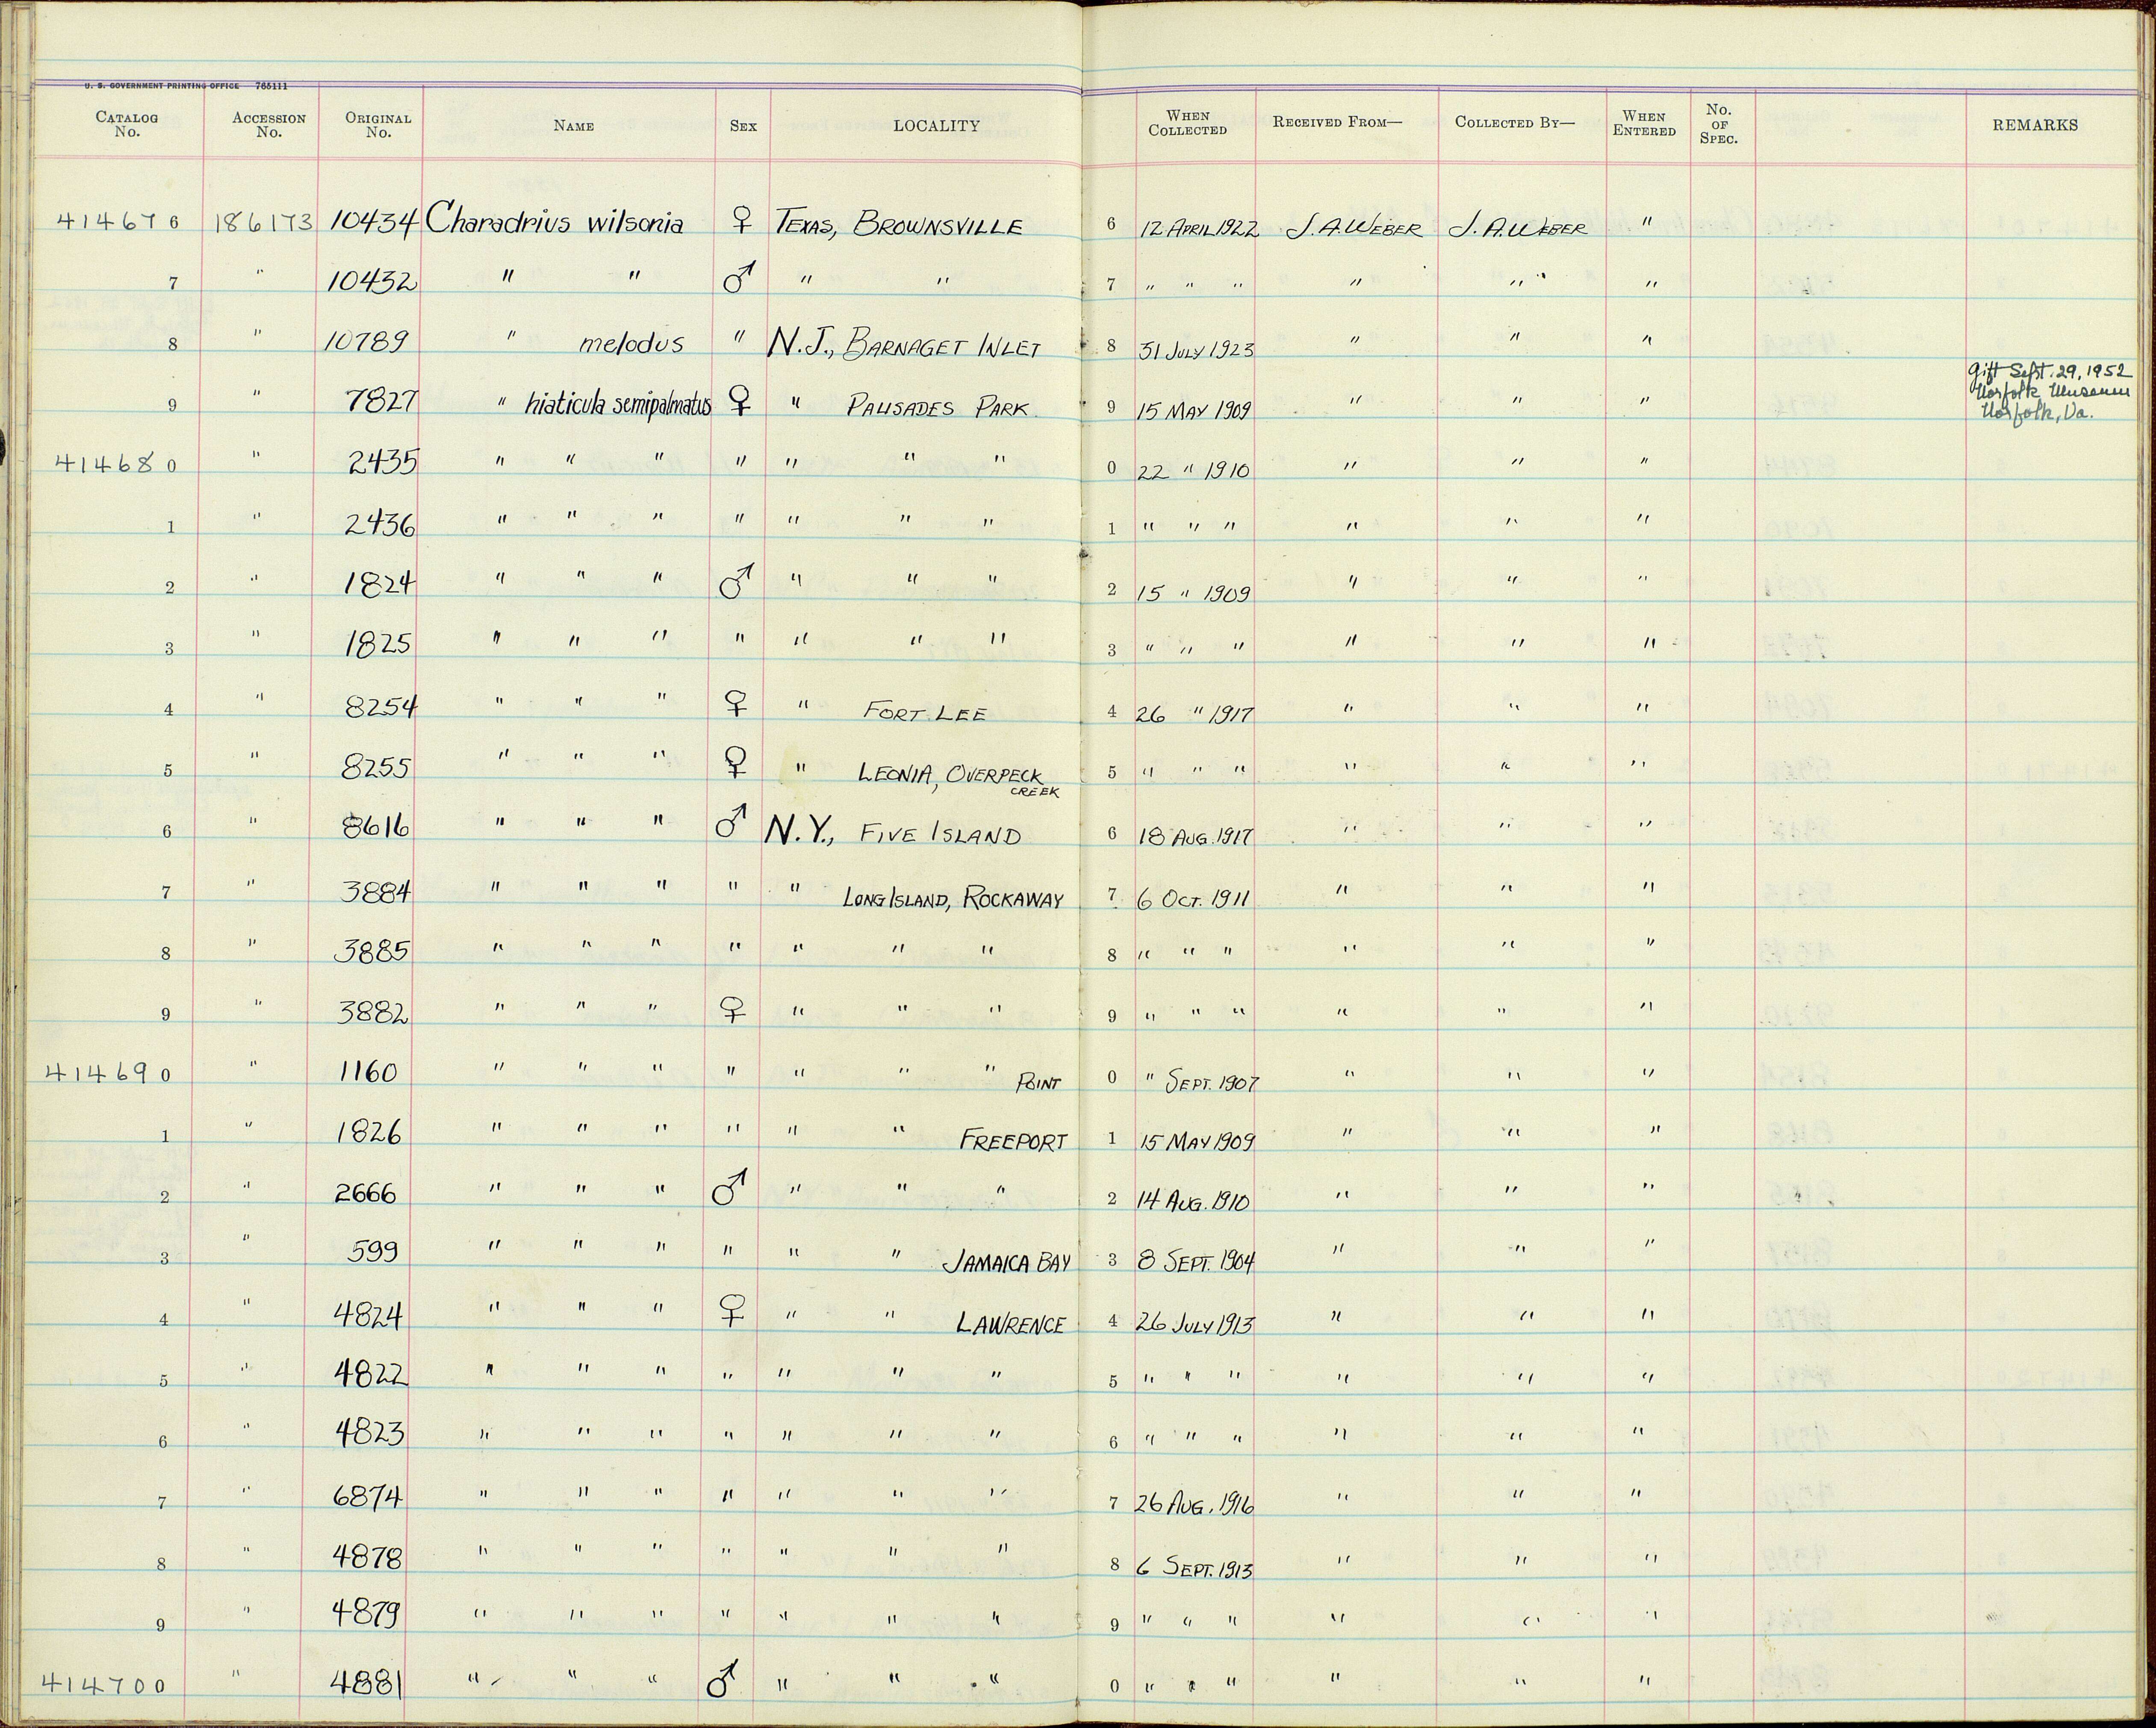 U. S. GOVERNMENT PRINTING OFFICE 765111
CATALOG No. ACCESSION No. ORIGINAL No. NAME SEX LOCALITY WHEN COLLECTED RECEIVED FROM— COLLECTED BY— WHEN ENTERED No. OF SPEC. REMARKS
414676 186173 10434 Charadrius wilsonia ♀ TEXAS, BROWNSVILLE 6 12 APRIL 1922 J. A. WEBER J. A. WEBER "
7 " 10432 " " ♂ " " 7 " " " " " "
8 " 10789 " melodus " N.J., BARNAGET INLET 8 31 JULY 1923 " " "
9 " 7827 " hiaticula semipalmatus ♀ " PALISADES PARK 9 15 MAY 1909 " " " Gift Sept. 29, 1952
Norfolk Museum
Norfolk, Va.
414680 " 2435 " " " " " " " 0 22 " 1910 " " "
1 " 2436 " " " " " " " 1 " " " " " "
2 " 1824 " " " ♂ " " " 2 15 " 1909 " " "
3 " 1825 " " " " " " " 3 " " " " " "
4 " 8254 " " " ♀ " FORT LEE 4 26 " 1917 " " "
5 " 8255 " " " ♀ " LEONIA, OVERPECK 5 " " " " " "
CREEK
6 " 8616 " " " ♂ N.Y., FIVE ISLAND 6 18 AUG. 1917 " " "
7 " 3884 " " " " " LONG ISLAND, ROCKAWAY 7 6 OCT. 1911 " " "
8 " 3885 " " " " " " " 8 " " " " " "
9 " 3882 " " " ♀ " " " 9 " " " " " "
414690 " 1160 " " " " " " " POINT 0 " SEPT. 1907 " " "
1 " 1826 " " " " " " FREEPORT 1 15 MAY 1909 " " "
2 " 2666 " " " ♂ " " " 2 14 AUG. 1910 " " "
3 " 599 " " " " " " JAMAICA BAY 3 8 SEPT. 1904 " " "
4 " 4824 " " " ♀ " " LAWRENCE 4 26 JULY 1913 " " "
5 " 4822 " " " " " " " 5 " " " " " "
6 " 4823 " " " " " " " 6 " " " " " "
7 " 6874 " " " " " " " 7 26 AUG. 1916 " " "
8 " 4878 " " " " " " " 8 6 SEPT. 1913 " " "
9 " 4879 " " " " " " " 9 " " " " " "
414700 " 4881 " " " ♂ " " " 0 " " " " " "